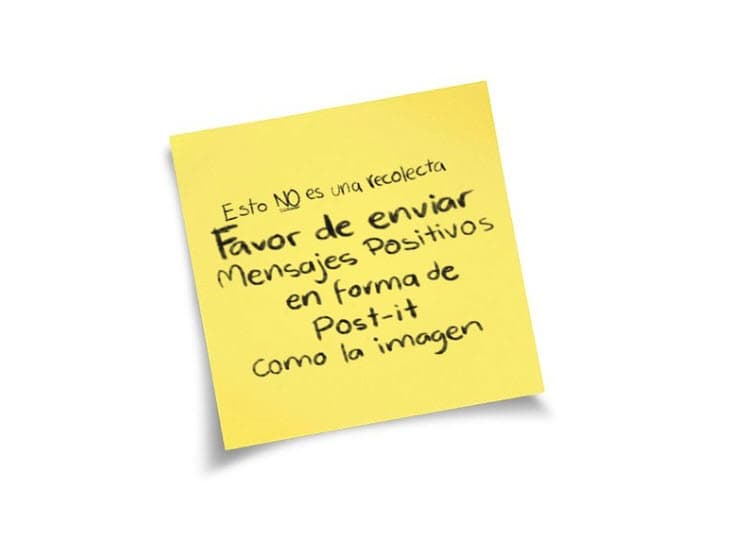 Esto NO es una recolecta
Favor de enviar
Mensajes Positivos
en forma de
Post-it
Como la imagen